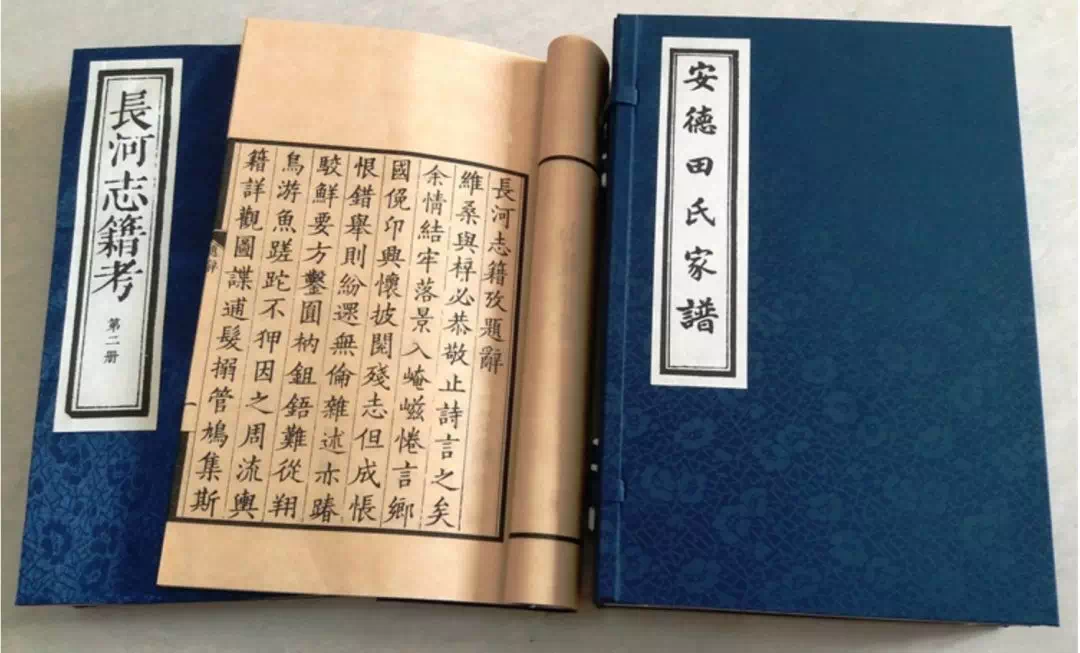 長河志籍考
第二册
長河志籍攷題辭
維桑與梓必恭敬止詩言之矣
余情結牢落景入崦嵫惓言鄉
國俛卬興懷披閱殘志但成悵
恨錯舉則紛遝無倫雜述亦踳
駮鮮要方鑿圓枘鉏鋙難從翔
鳥游魚蹉跎不狎因之周流輿
籍詳觀圖諜逋髮搦管鳩集斯
安德田氏家譜